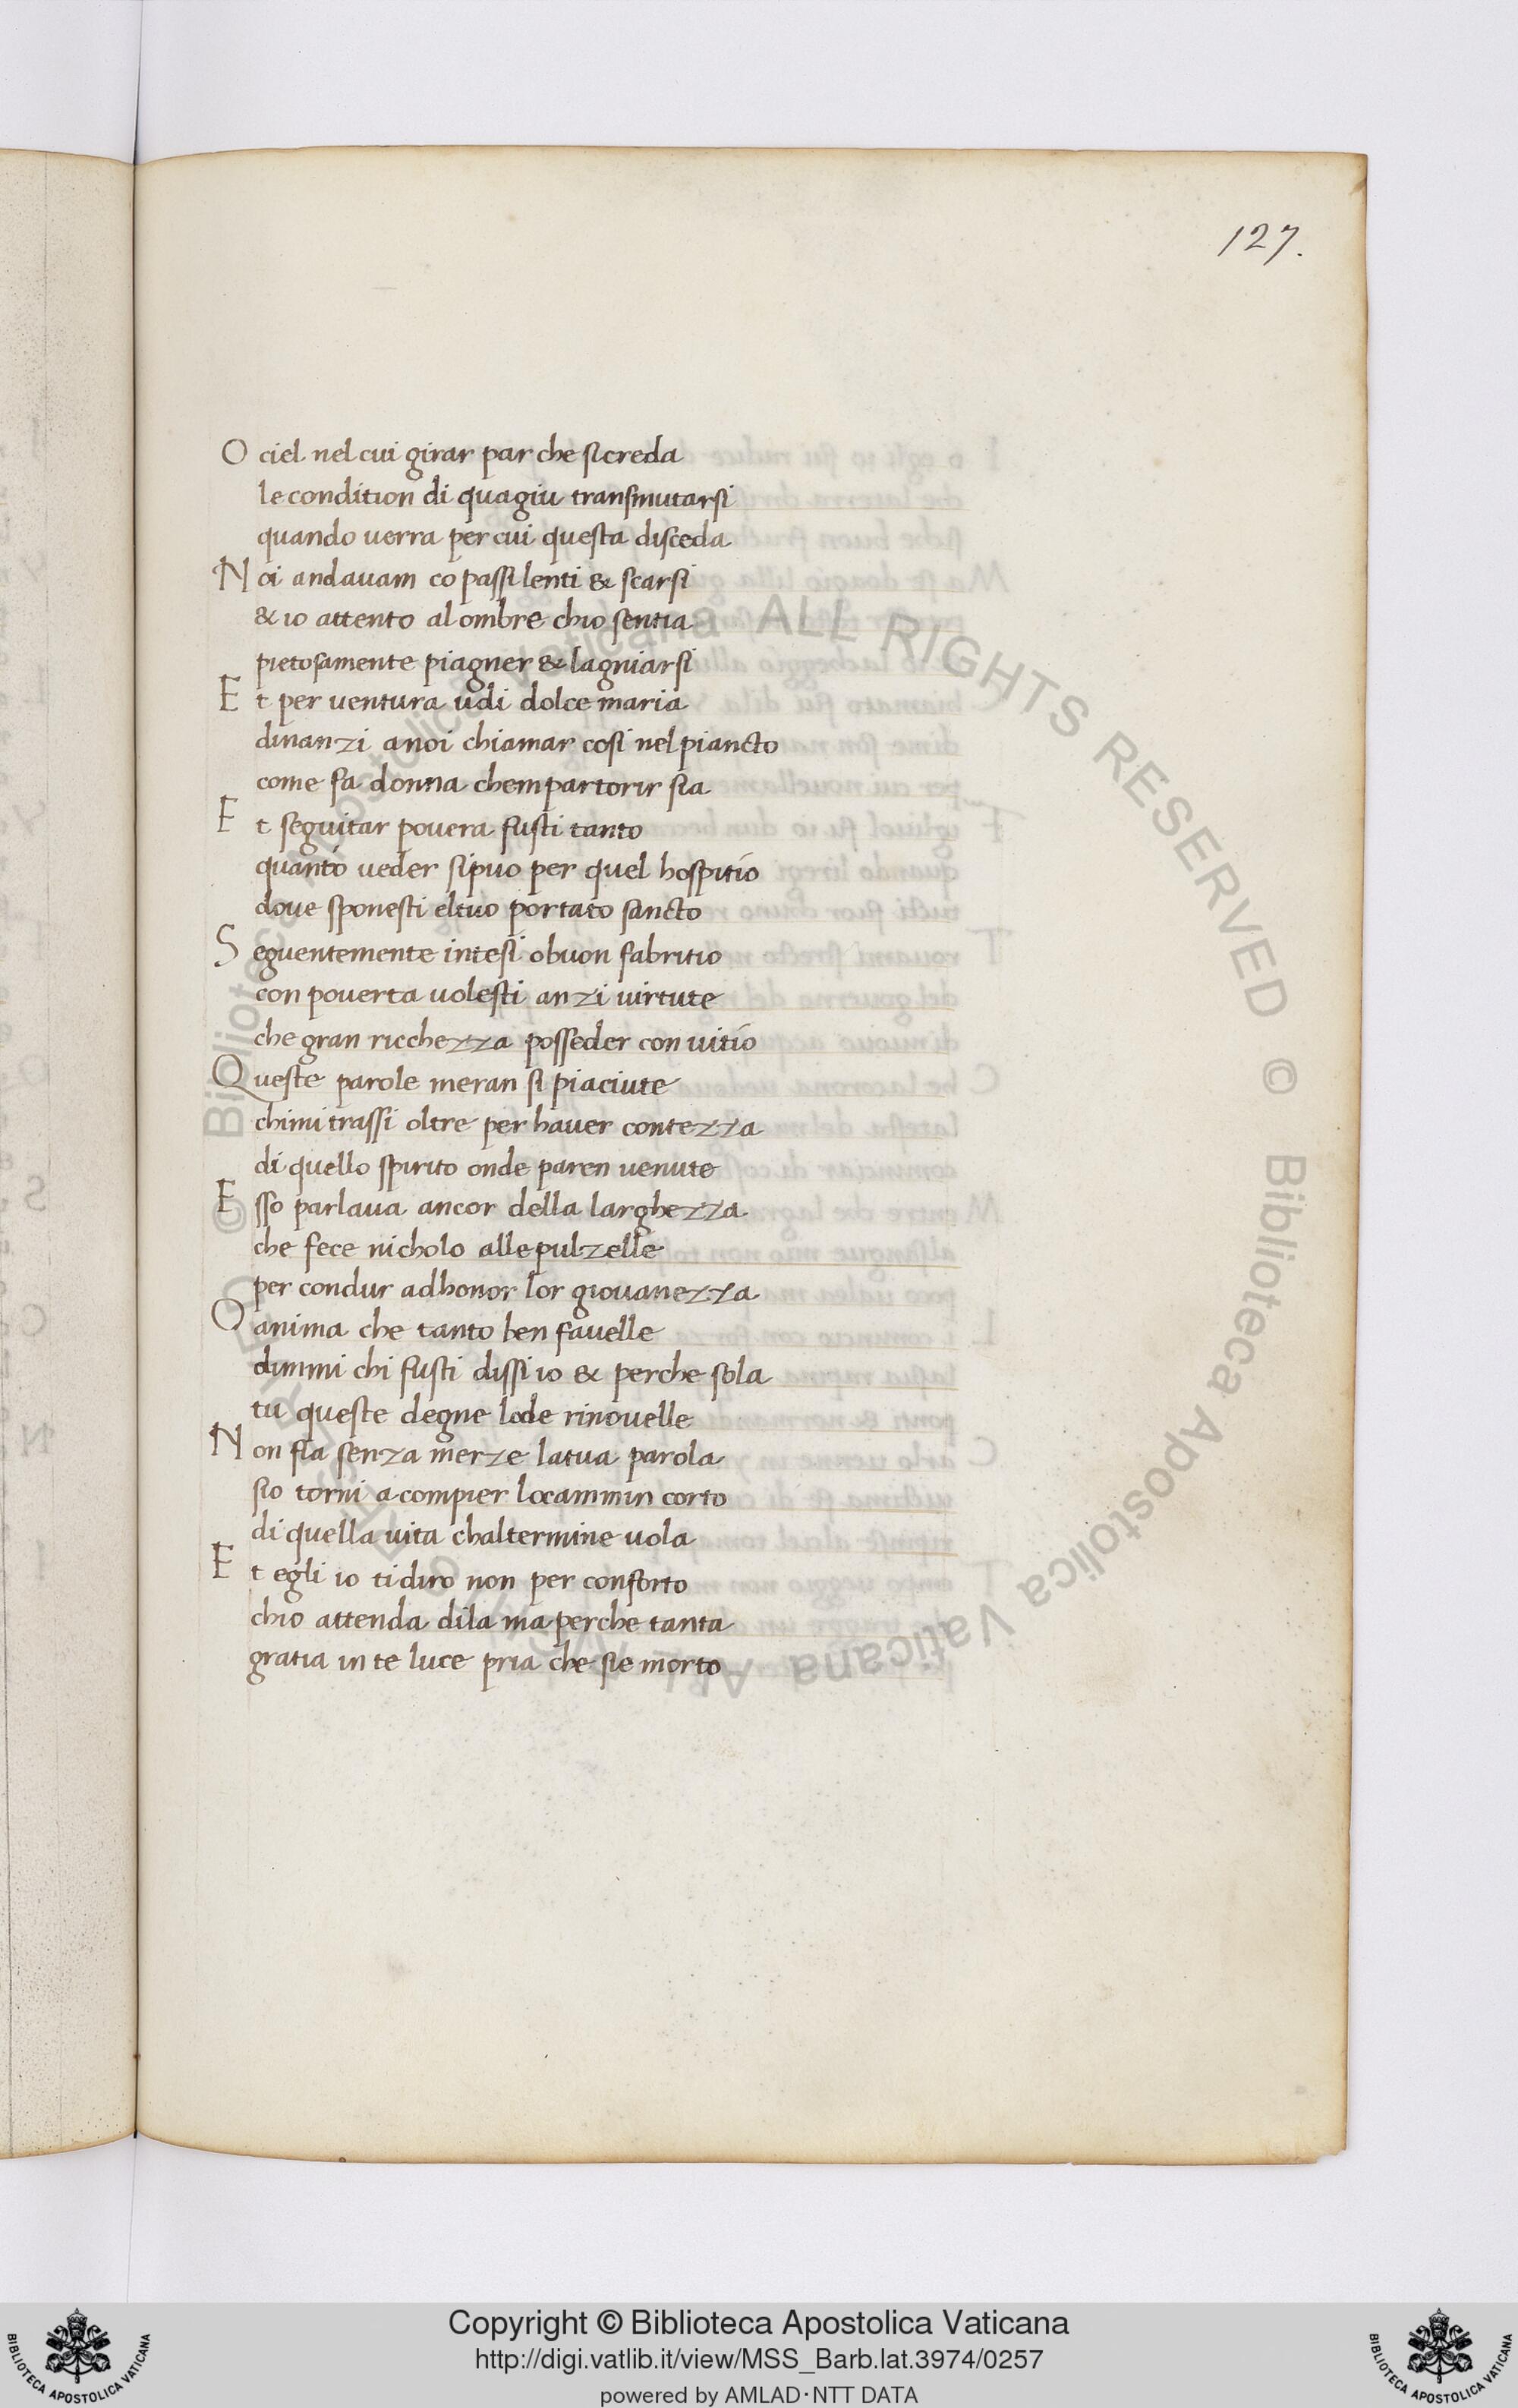 127.
O ciel nel cui girar par che si creda
le condition di quagiu transmutarsi
quando uerra per cui questa disceda
N oi andauam co passi lenti & scarsi
& io attento al ombre chio sentia
pietosamente piagner & lagniarsi
E t per uentura udi dolce maria
dinanzi anoi chiamar cosi nel piancto
come fa donna chempartorir sia
E t seguitar pouera fusti tanto
quanto ueder sipuo per quel hospitio
doue sponesti eltuo portato sancto
S eguentemente intesi obuon fabritio
con pouerta uolesti anzi uirtute
che gran ricchezza posseder con uitio
Q ueste parole meran si piaciute
chimi trassi oltre per hauer contezza
di quello spirito onde paren uenute
E sso parlaua ancor della larghezza
che fece nicholo alle pulzelle
per condur adhonor lor giouanezza
O anima che tanto ben fauelle
dimmi chi fusti dissi io & perche sola
tu queste degne lode rinouelle
N on fia senza merze latua parola
sio torni acompier locammin corto
di quella uita chaltermine uola
E t egli io tidiro non per conforto
chio attenda dila ma perche tanta
gratia in te luce pria che sie morto
© Biblioteca Apostolica Vaticana ALL RIGHTS RESERVED © Biblioteca Apostolica Vaticana ALL RIGHTS RESERVED
Copyright © Biblioteca Apostolica Vaticana
http://digi.vatlib.it/view/MSS_Barb.lat.3974/0257
powered by AMLAD·NTT DATA
BIBLIOTECA APOSTOLICA VATICANA
BIBLIOTECA APOSTOLICA VATICANA